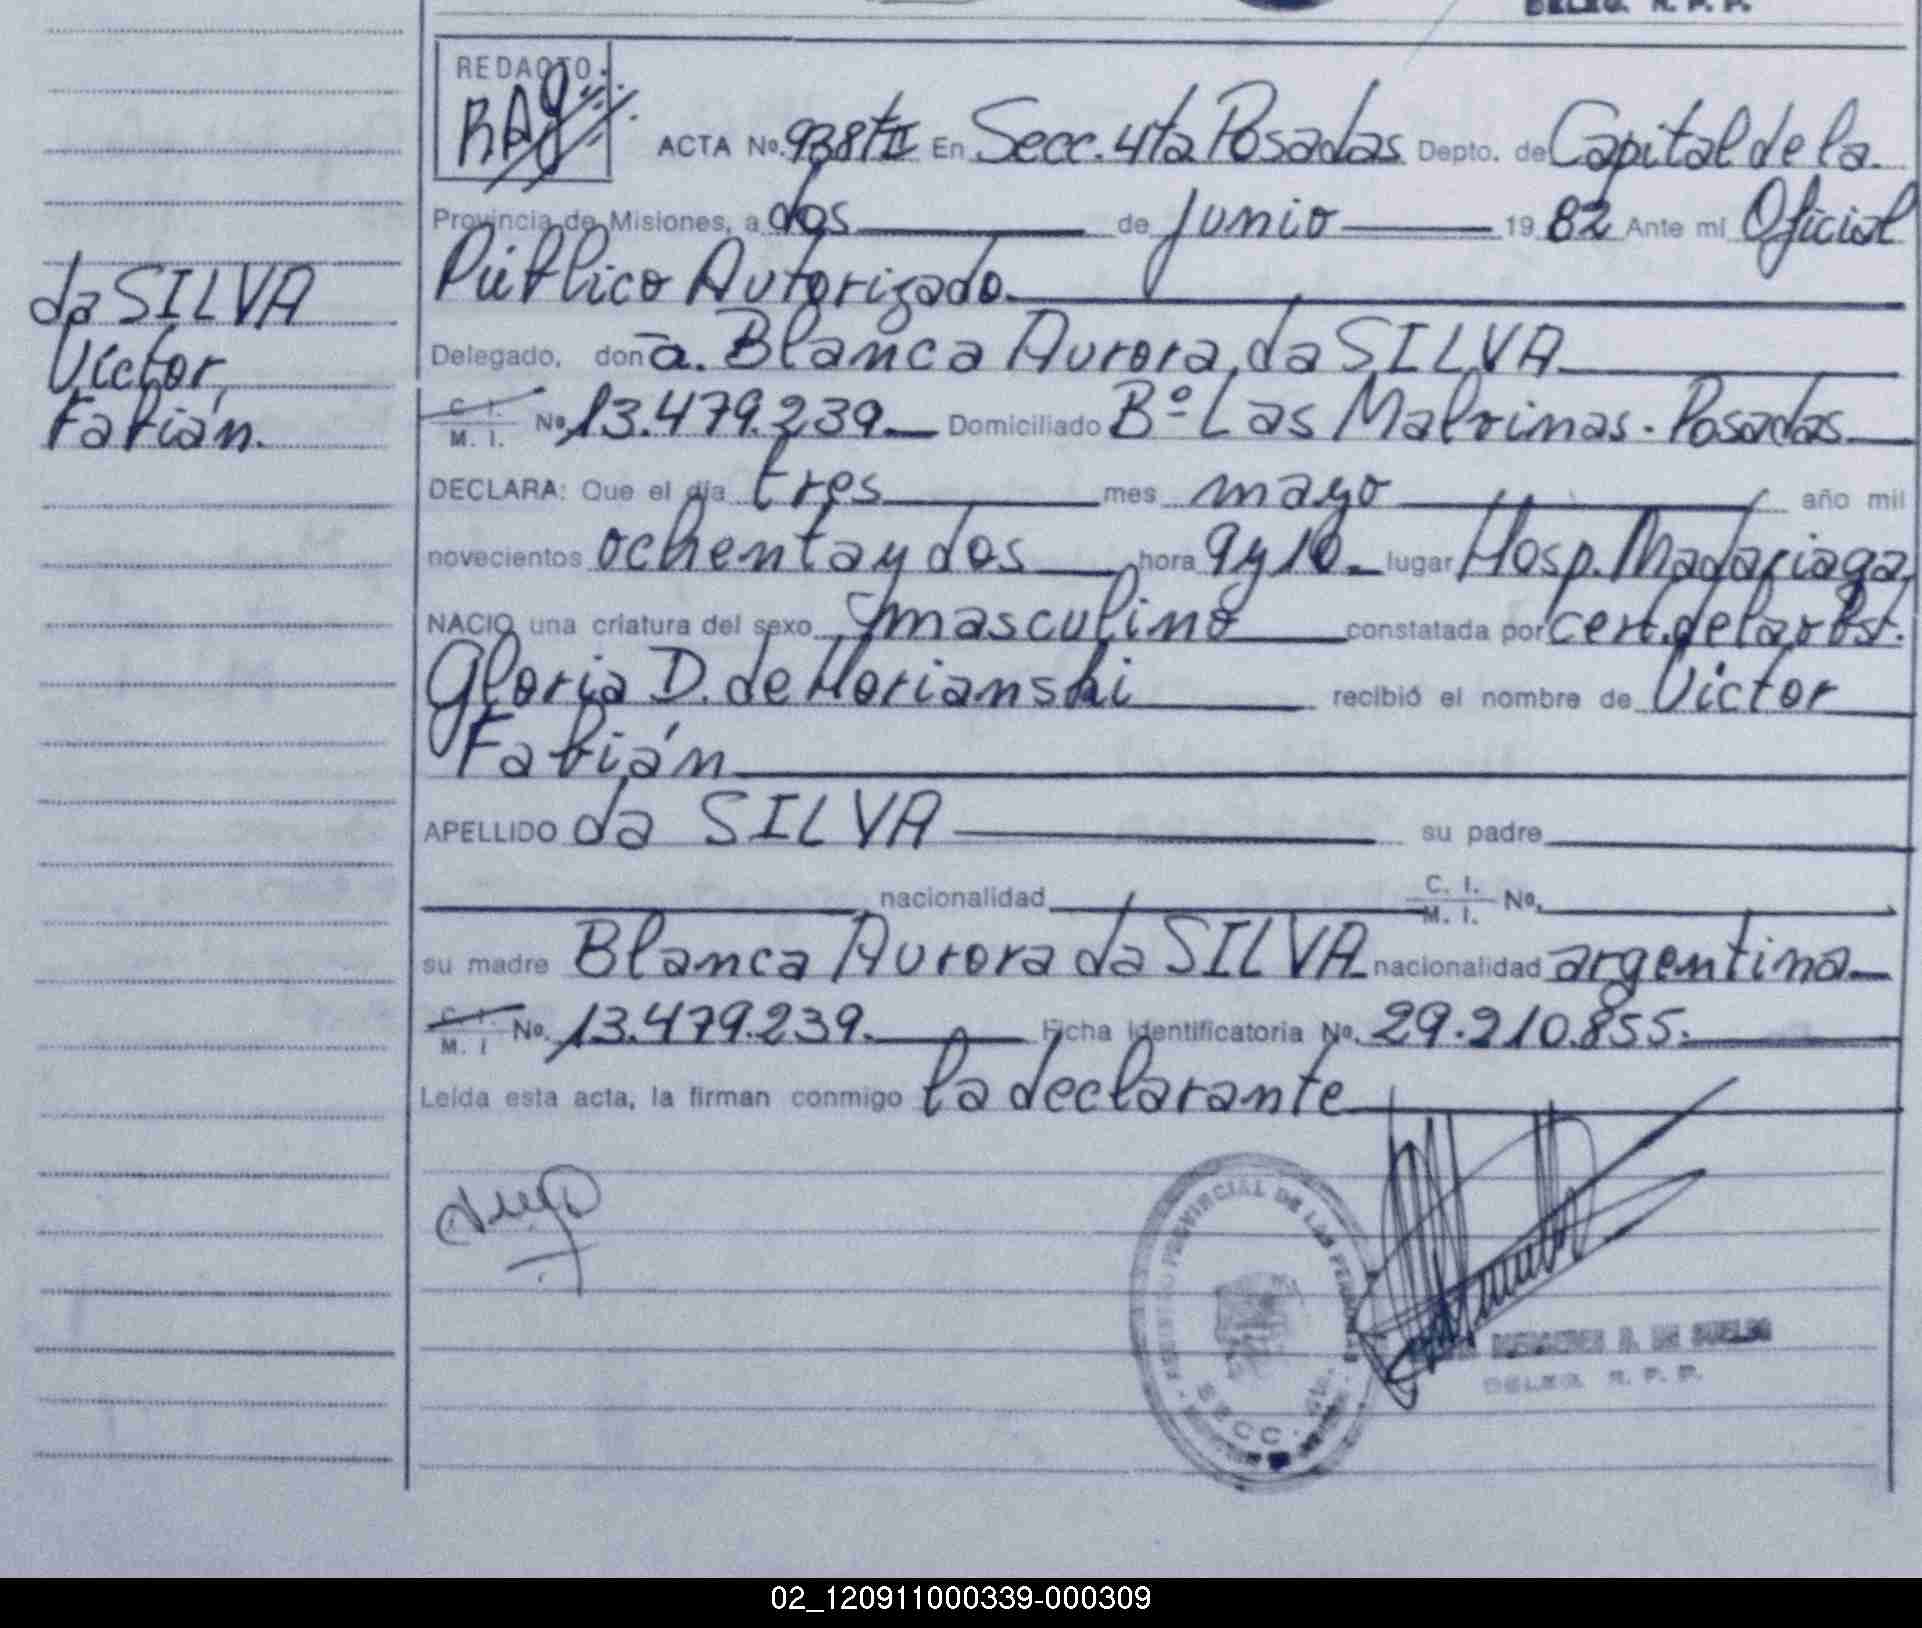 DELEG. R. P. P.
REDACTO
ACTA No. 938 tII En Secc. 4ta Posadas Depto. de Capital de la
Provincia de Misiones, a dos de Junio 1982 Ante mi Oficial
Público Autorizado.
da SILVA
Victor
Fabián.
Delegado, don a. Blanca Aurora da SILVA
C. I. M. I. No 13.479.239. Domiciliado Bº Las Malvinas. Posadas
DECLARA: Que el día tres mes mayo año mil
novecientos ochenta y dos hora 9 y 10. lugar Hosp. Madariaga,
NACIO una criatura del sexo masculino constatada por cert. de la obst.
Gloria D. de recibió el nombre de Victor
Fabián
APELLIDO da SILVA su padre
nacionalidad C. I. M. I. No.
su madre Blanca Aurora da SILVA nacionalidad argentina
C. I. M. I No. 13.479.239. Ficha Identificatoria No. 29.210.855.
Leída esta acta, la firman conmigo la declarante
REGISTRO PROVINCIAL DE LAS PERSONAS
SECC. 4ta.
DELEG. R. P. P.
02_120911000339-000309